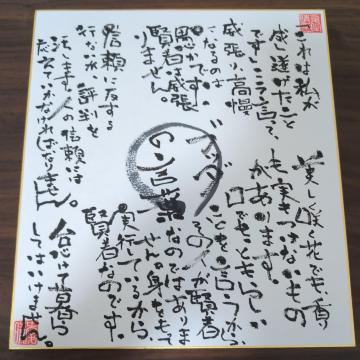 これは私が
成し遂げたこと
ですとこう言って、
威張り、高慢
になるのは
愚かです。
賢者は威張
りません。
信頼に反する
行ないは、評判を
汚します。人の信頼には
応えていかなければなりません。
ブッダ
の言葉
美しく咲く花でも、香り
も実もつけないもの
があります。
口でもっともらしい
ことを言うから、
その人が賢者
なのではありま
せん。身をもって
実行しているから、
賢者なのです。
怠けて暮ら
してはいけません。